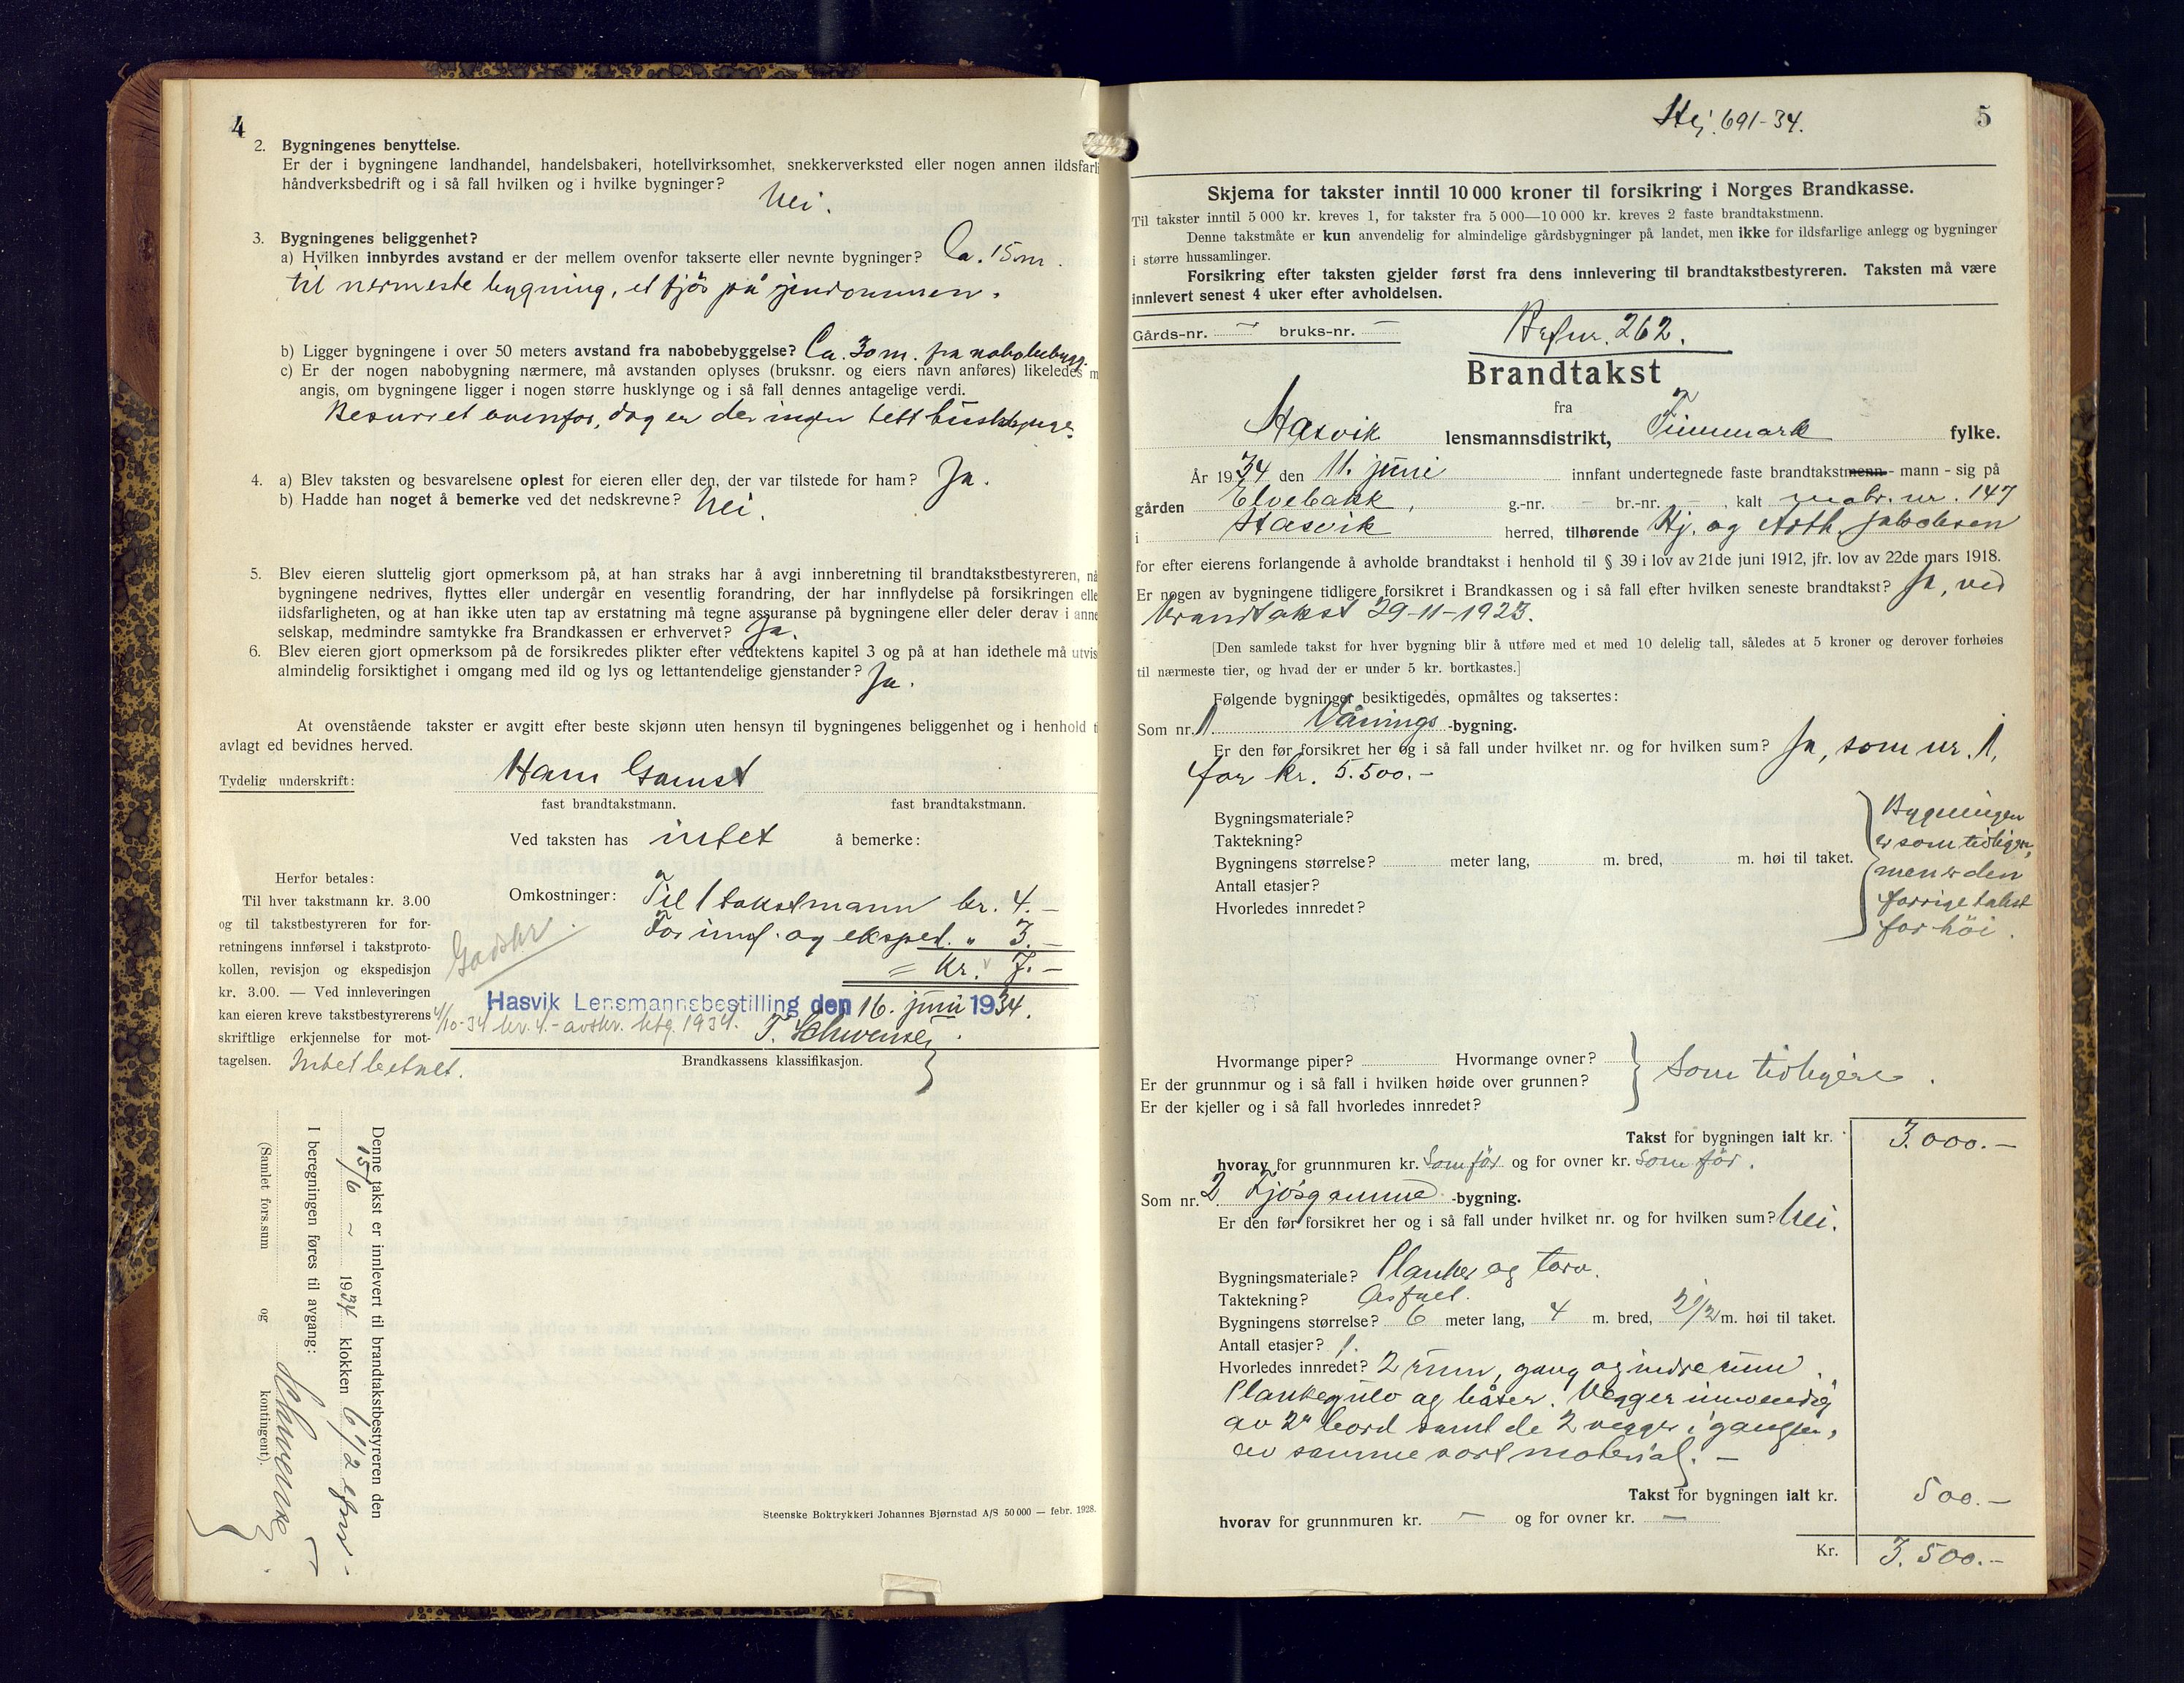 4
2. Bygningenes benyttelse.
Er der i bygningene landhandel, handelsbakeri, hotellvirksomhet, snekkerverksted eller nogen annen ildsfarli
håndverksbedrift og i så fall hvilken og i hvilke bygninger?
Nei.
3. Bygningenes beliggenhet?
a) Hvilken innbyrdes avstand er der mellem ovenfor takserte eller nevnte bygninger? Ca. 15 m.
til nermeste bygning, et fjøs på eiendommen.
b) Ligger bygningene i over 50 meters avstand fra nabobebyggelse? Ca. 30 m. fra nabobebygg.
c) Er der nogen nabobygning nærmere, må avstanden oplyses (bruksnr. og eiers navn anføres) likeledes m
angis, om bygningene ligger i nogen større husklynge og i så fall dennes antagelige verdi.
Besvaret ovenfor, dog er der ingen tett
4. a) Blev taksten og besvarelsene oplest for eieren eller den, der var tilstede for ham? Ja.
b) Hadde han noget å bemerke ved det nedskrevne? Nei.
5. Blev eieren sluttelig gjort opmerksom på, at han straks har å avgi innberetning til brandtakstbestyreren, nå
bygningene nedrives, flyttes eller undergår en vesentlig forandring, der har innflydelse på forsikringen elle
ildsfarligheten, og at han ikke uten tap av erstatning må tegne assuranse på bygningene eller deler derav i anne
selskap, medmindre samtykke fra Brandkassen er erhvervet? Ja.
6. Blev eieren gjort opmerksom på de forsikredes plikter efter vedtektens kapitel 3 og på at han idethele må utvis
almindelig forsiktighet i omgang med ild og lys og lettantendelige gjenstander? Ja.
At ovenstående takster er avgitt efter beste skjønn uten hensyn til bygningenes beliggenhet og i henhold t
avlagt ed bevidnes herved.
Tydelig underskrift: Hans Gamst
fast brandtakstmann. fast brandtakstmann.
Ved taksten has intet å bemerke:
Omkostninger: Til 1 takstmann kr. 4.–
For innf. og eksped. " 3.–
= Kr. 7.–
Hasvik Lensmannsbestilling den 16. juni 1934.
4/10-34 kr. 4.– avskr. 1934.
T. Schwenke
Brandkassens klassifikasjon.
Herfor betales:
Til hver takstmann kr. 3.00
og til takstbestyreren for for-
retningens innførsel i takstproto-
kollen, revisjon og ekspedisjon
kr. 3.00. — Ved innleveringen
kan eieren kreve takstbestyrerens
skriftlige erkjennelse for mot-
tagelsen. Intet betalt.
Denne takst er innlevert til brandtakstbestyreren den
15/6 1934 klokken 6 1/2
I beregningen føres til avgang:
Schwenke
(Samlet fors.sum og kontingent).
Steenske Boktrykkeri Johannes Bjørnstad A/S 50 000 — febr. 1928.
691-34. 5
Skjema for takster inntil 10 000 kroner til forsikring i Norges Brandkasse.
Til takster inntil 5 000 kr. kreves 1, for takster fra 5 000—10 000 kr. kreves 2 faste brandtakstmenn.
Denne takstmåte er kun anvendelig for almindelige gårdsbygninger på landet, men ikke for ildsfarlige anlegg og bygninger
i større hussamlinger.
Forsikring efter taksten gjelder først fra dens innlevering til brandtakstbestyreren. Taksten må være
innlevert senest 4 uker efter avholdelsen.
Gårds-nr. – bruks-nr. –
262.
Brandtakst
fra
Hasvik lensmannsdistrikt, Finnmark fylke.
År 1934 den 11. juni innfant undertegnede faste brandtakstmenn - mann - sig på
gården Elvebakk, g.-nr. – br.-nr. –, kalt matr. nr. 147
i Hasvik herred, tilhørende Hj. og Arth. Jakobsen
for efter eierens forlangende å avholde brandtakst i henhold til § 39 i lov av 21de juni 1912, jfr. lov av 22de mars 1918.
Er nogen av bygningene tidligere forsikret i Brandkassen og i så fall efter hvilken seneste brandtakst? Ja, ved
brandtakst 29-11-1923.
[Den samlede takst for hver bygning blir å utføre med et med 10 delelig tall, således at 5 kroner og derover forhøies
til nærmeste tier, og hvad der er under 5 kr. bortkastes.]
Følgende bygninger besiktigedes, opmåltes og taksertes:
Som nr. 1 Vånings -bygning.
Er den før forsikret her og i så fall under hvilket nr. og for hvilken sum? Ja, som nr. 1,
for kr. 5.500.–
Bygningsmateriale?
Taktekning?
Bygningens størrelse? meter lang, m. bred, m. høi til taket.
Antall etasjer?
Hvorledes innredet?
Bygningen
er som tidligere,
men er den
forrige takst
for høi.
Hvormange piper? Hvormange ovner?
Er der grunnmur og i så fall i hvilken høide over grunnen?
Er der kjeller og i så fall hvorledes innredet?
Som tidligere.
Takst for bygningen ialt kr. 3.000.–
hvorav for grunnmuren kr. Som før og for ovner kr. Som før.
Som nr. 2 Fjøsgamme -bygning.
Er den før forsikret her og i så fall under hvilket nr. og for hvilken sum? Nei.
Bygningsmateriale? Planker og torv.
Taktekning? Asfalt.
Bygningens størrelse? 6 meter lang, 4 m. bred, 2 1/2 m. høi til taket.
Antall etasjer? 1.
Hvorledes innredet? 2 rum, gang og indre rum.
Plankegulv og båser. Vegger innvendig
av 2" bord samt de 2 vegger i gangen,
av samme sort material. –
Takst for bygningen ialt kr. 500.–
hvorav for grunnmuren kr. – og for ovner kr. –
Kr. 3.500.–